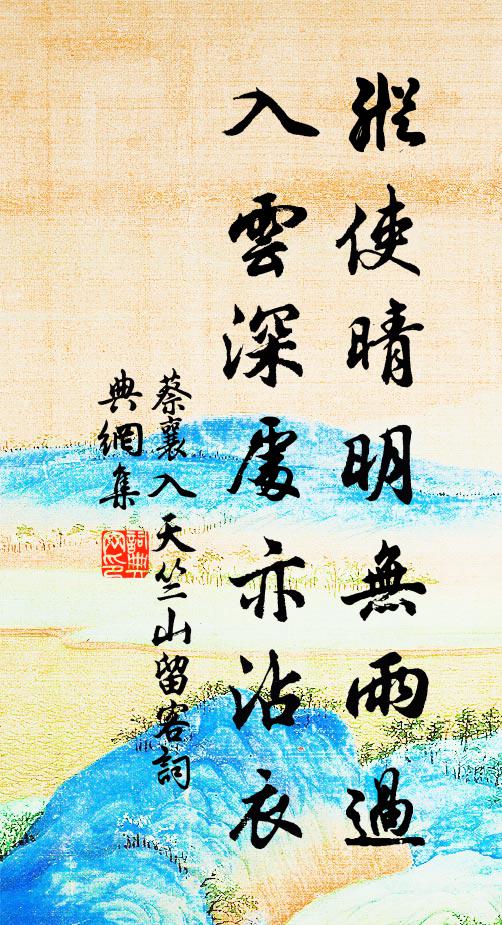 縱使晴明無雨過
入雲深處亦沾衣
蔡襄入天竺山留客詞
典網集
詞典網印